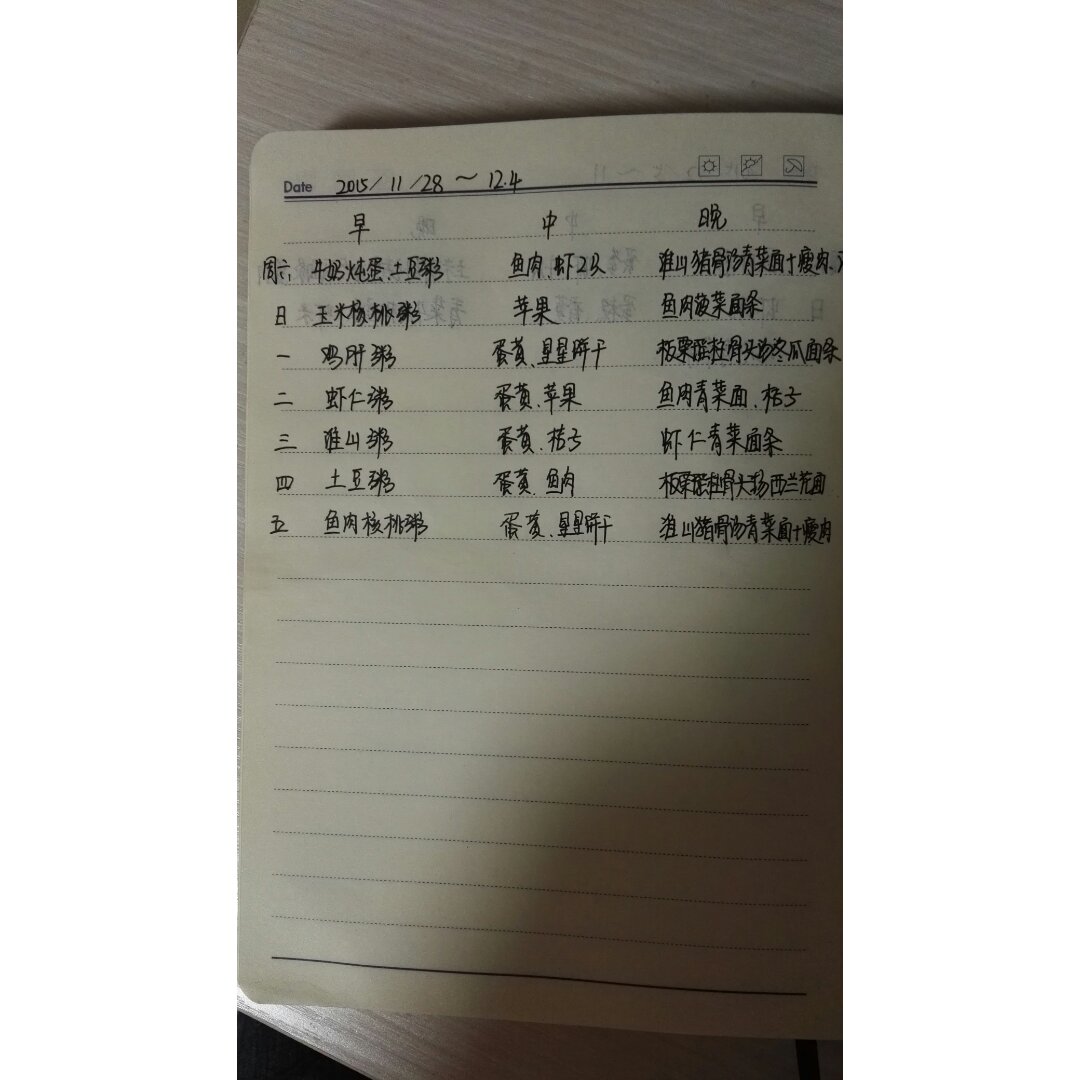 Date 2015/11/28～12.4
早 中 晚
周六 牛奶炖蛋.土豆粥 鱼肉.虾2只 淮山猪骨汤青菜面+瘦肉.
日 玉米核桃粥 苹果 鱼肉菠菜面条
一 鸡肝粥 蛋黄.星星饼干 板栗筒骨头汤冬瓜面条
二 虾仁粥 蛋黄.苹果 鱼肉青菜面.桔子
三 淮山粥 蛋黄.桔子 虾仁青菜面条
四 土豆粥 蛋黄.鱼肉 板栗骨头汤西兰花面
五 鱼肉核桃粥 蛋黄.星星饼干 淮山猪骨汤青菜面+瘦肉